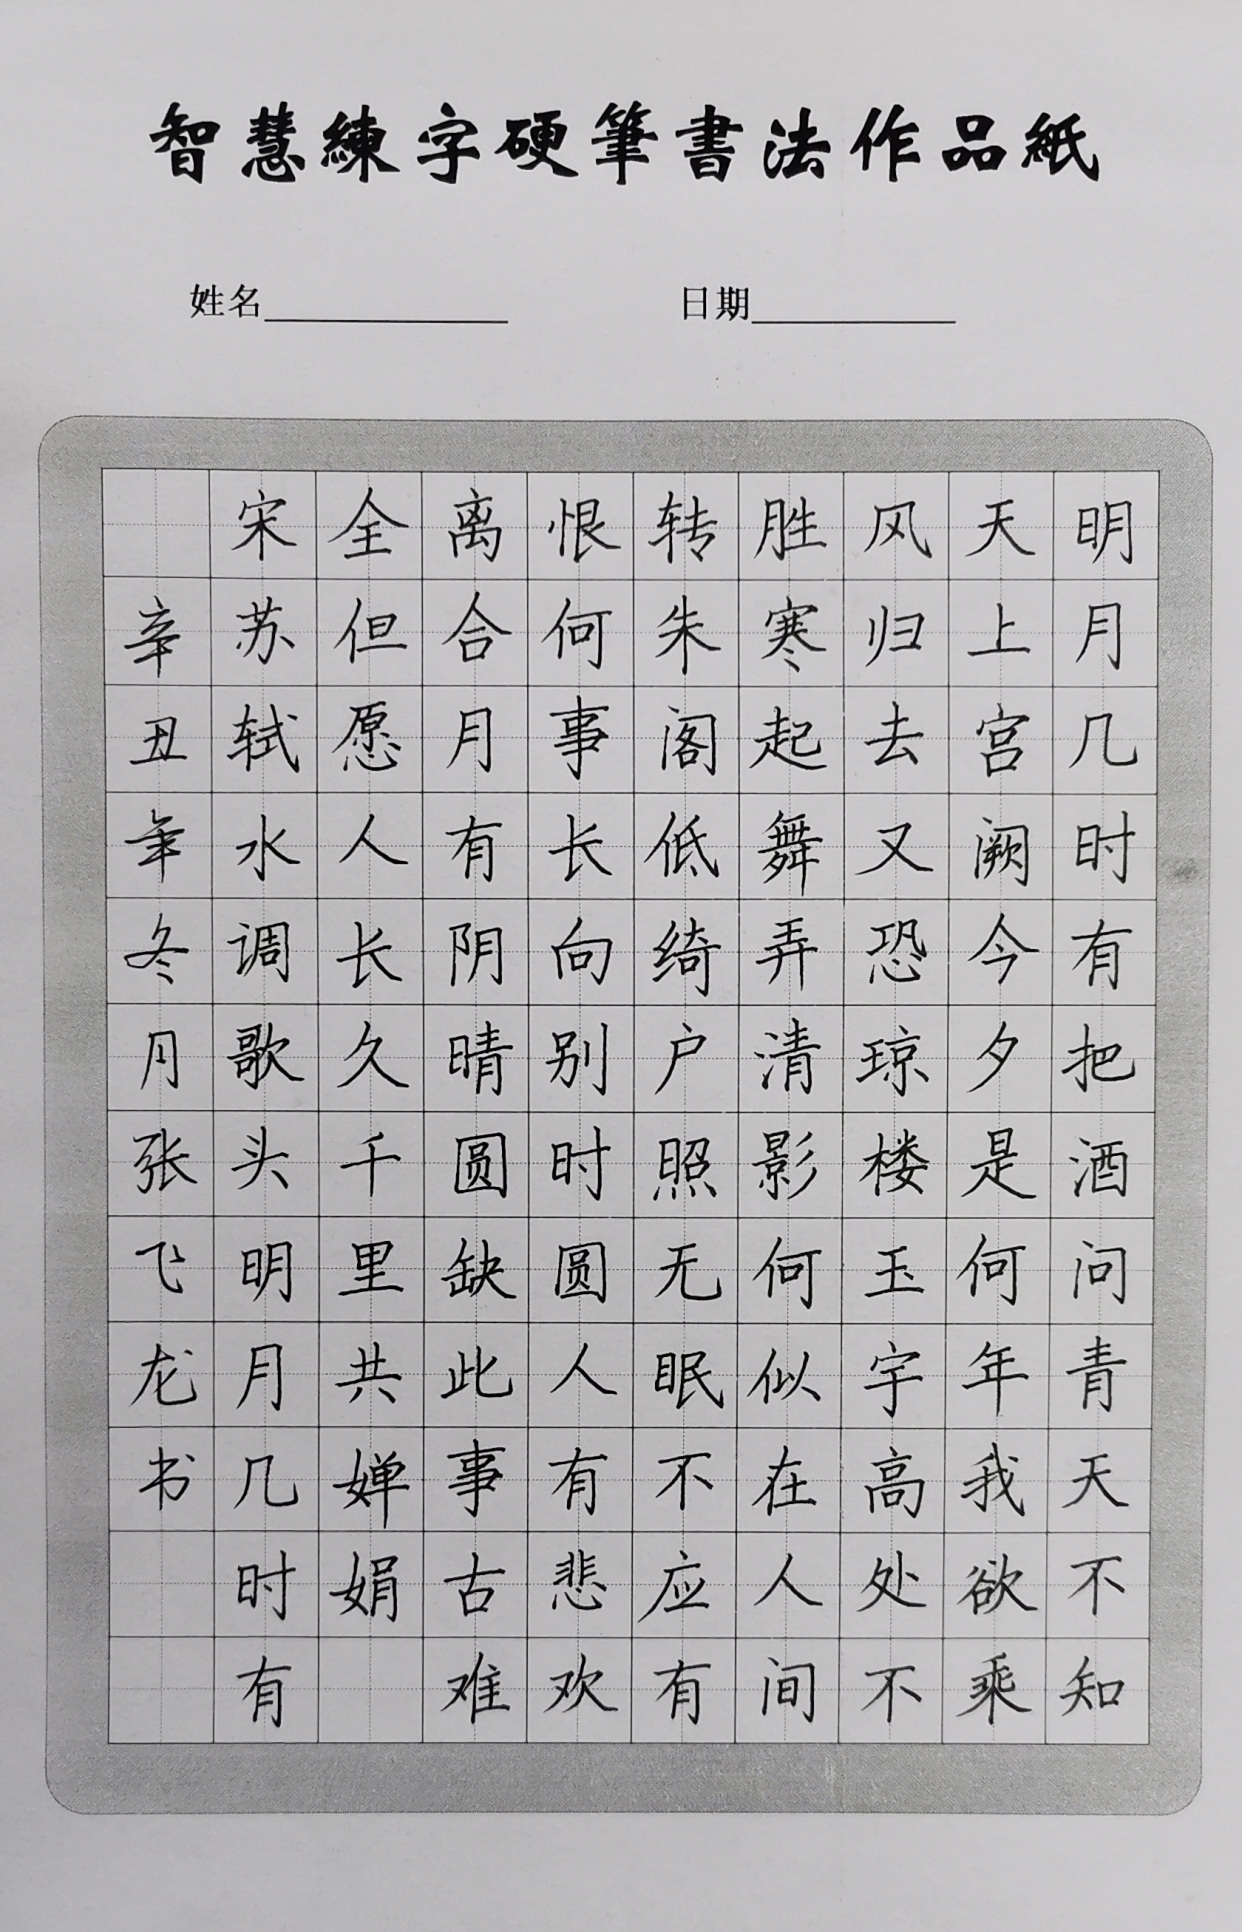 智慧練字硬筆書法作品紙
姓名
日期
明月几时有把酒问青天不知
天上宫阙今夕是何年我欲乘
风归去又恐琼楼玉宇高处不
胜寒起舞弄清影何似在人间
转朱阁低绮户照无眠不应有
恨何事长向别时圆人有悲欢
离合月有阴晴圆缺此事古难
全但愿人长久千里共婵娟
宋苏轼水调歌头明月几时有
辛丑年冬月张飞龙书